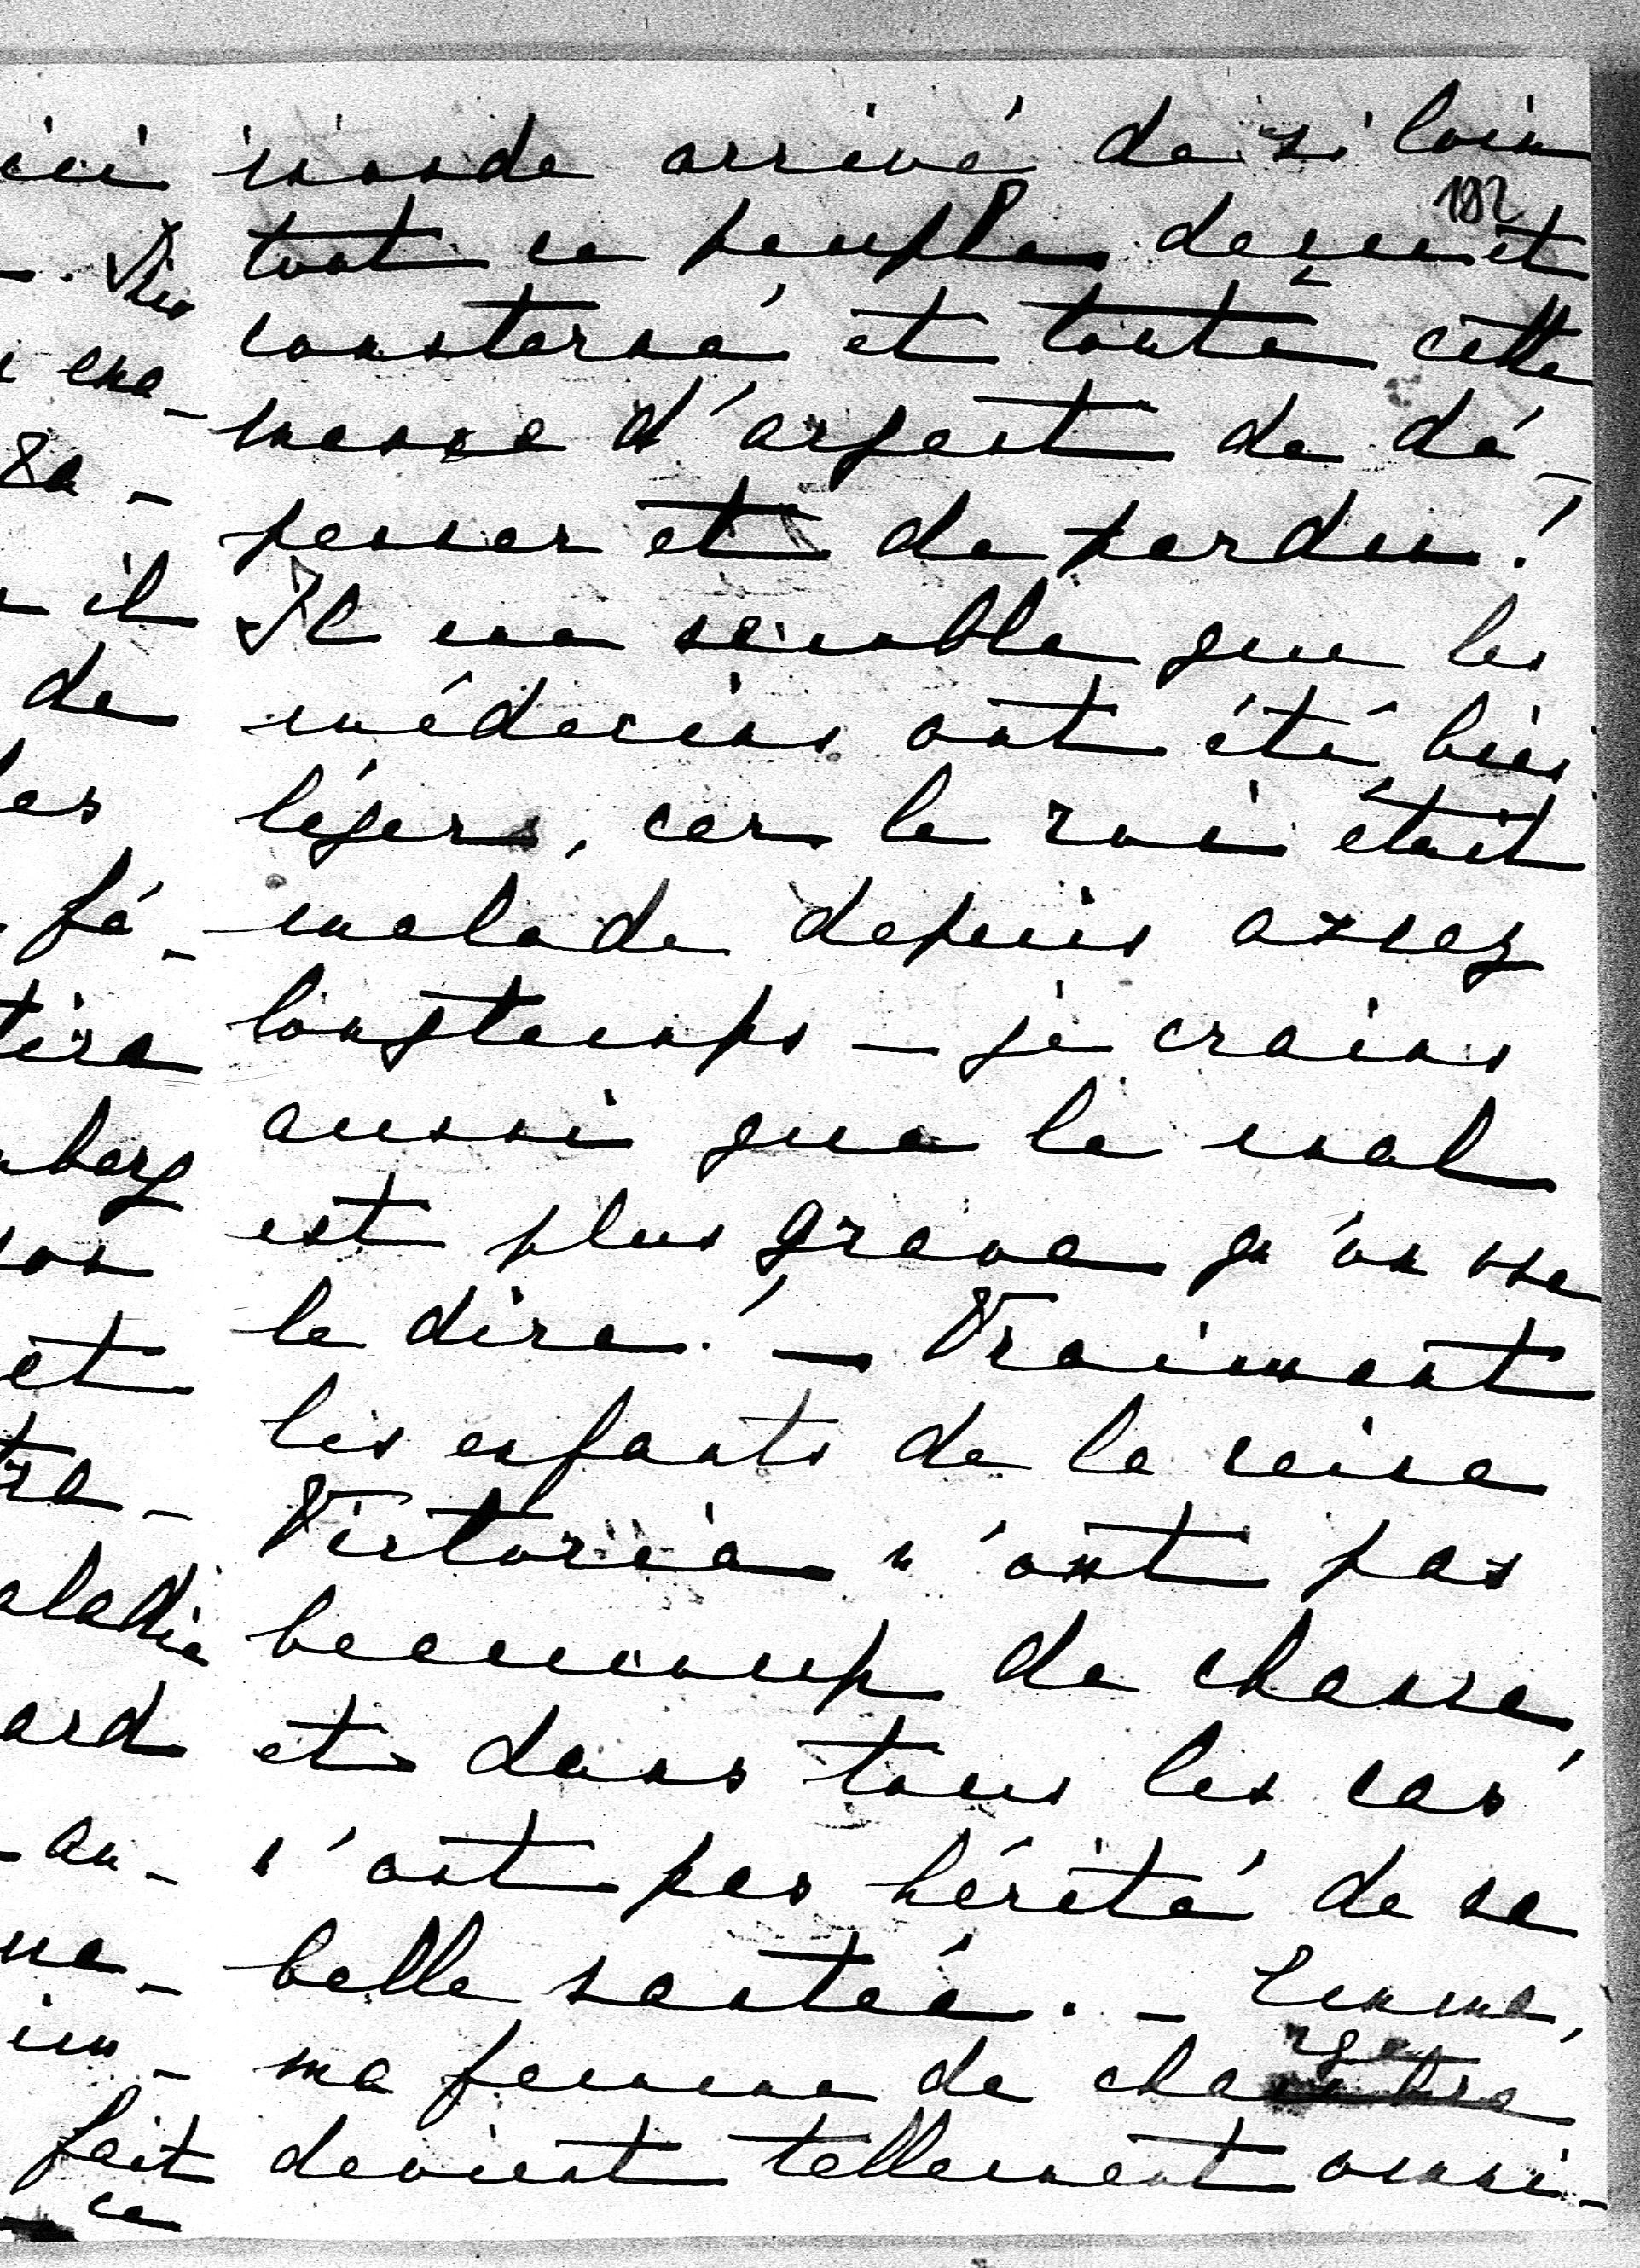 ici
il
de
fé-
et
ard
au-
fait
ce
monde arrivé de si loin
192
tout ce peuple deçu et
consterné et toute cette
masse d'argent de dé-
penser et de perdu!
Il me semble que les
médecins ont été bien
légers, car le roi était
malade depuis assez
longtemps — je crains
aussi que le mal
est plus grave qu'on ose
le dire! — Vraiment
les enfants de la reine
Victoria n'ont pas
beaucoup de chance,
et dans tous les cas
n'ont pas hérité de sa
belle santée. — Emma,
rge
ma femme de chambre
devient tellement omni-